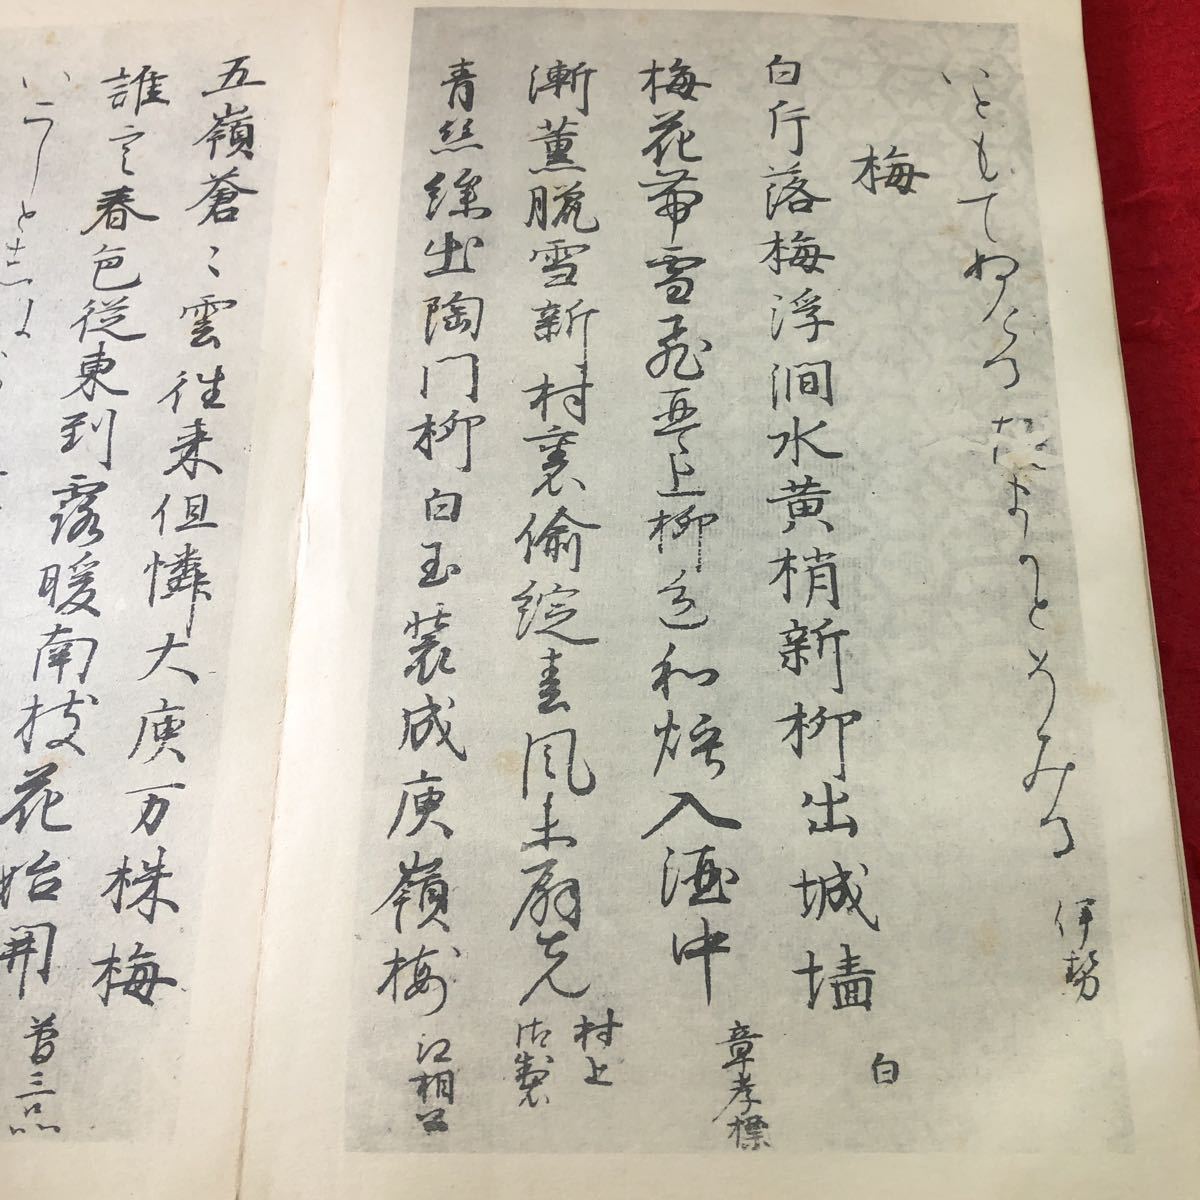 いともてぬけるたまかとそみる 伊勢
梅
白片落梅浮澗水黄梢新柳出城墻 白
梅花帯雪飛琴上柳色和煙入酒中 章孝標
漸薫臘雪新封裏偷綻春風未扇先 村上御製
青絲繰出陶門柳白玉装成庾嶺梅 江相公
五嶺蒼〻雲往来但憐大庾万株梅
誰言春色従東到露暖南枝花始開 菅三品
いにしとし